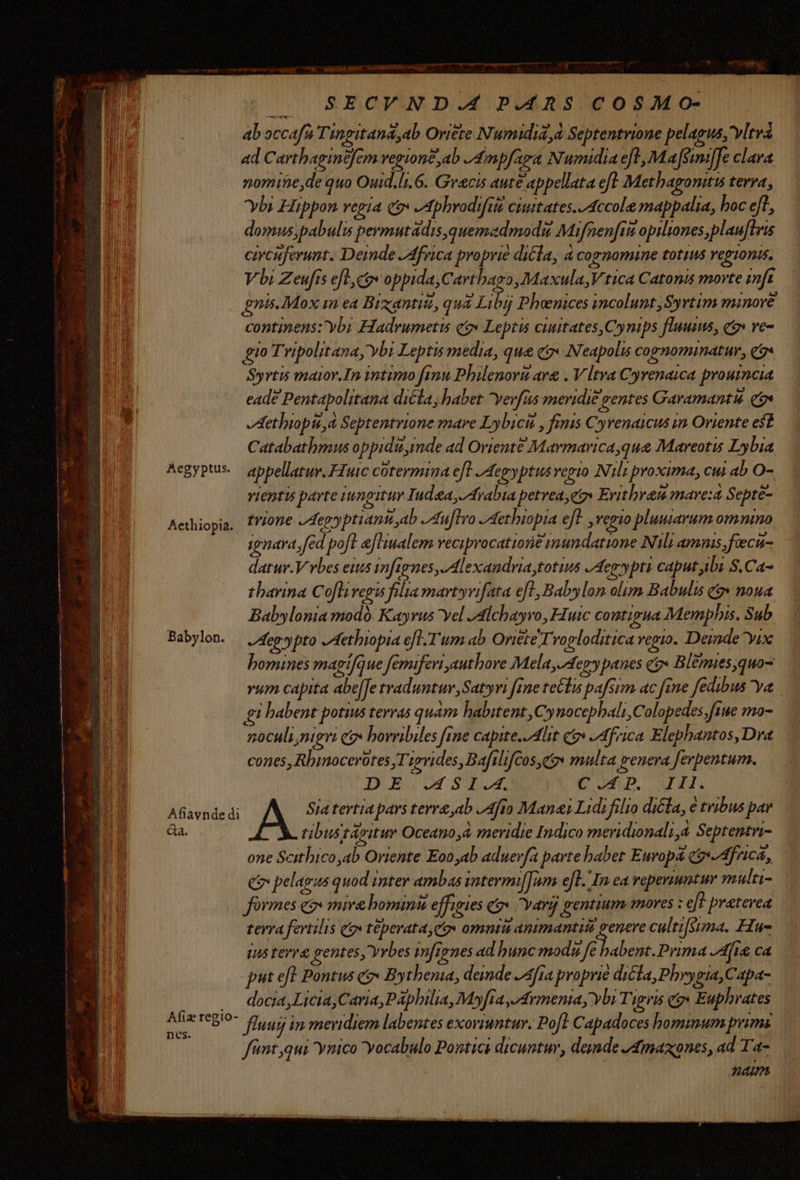 SECVNDA PARS COSMO-
ab occasu Tingitana,ab Oriẽte Numidia,à Septentrione pelagus,vltrà
ad Carthaginẽsem regionẽ,ab Ampsaga Numidia est,Massinisse clara
nomine,de quo Ouid.li.6. Grecis autẽ appellata est Methagonitis terra,
vbi Hippon regia &amp; Aphrodisiũ ciuitates.Accole mappalia, hoc est,
domus,pabulis permutãdis,quemadmodũ Misnensiũ opiliones,plaustris
circũferunt. Deinde Africa proprie dicta, à cognomine totius regionis.
Vbi Zeusis est,&amp; oppida,Carthago,Maxula,Vtica Catonis morte insi
gnis.Mox in ea Bizantiũ, quã Libij Phœnices incolunt,Syrtim minorẽ
continens:vbi Hadrumetis &amp; Leptis ciuitates,Cynips fluuius, &amp; re-
gio Tripolitana,vbi Leptis media, que &amp; Neapolis cognominatur, &amp;
Syrtis maior.In intimo sinu Philenorũ are . Vltra Cyrenaica prouincia
eadẽ Pentapolitana dicta, habet versus meridiẽ gentes Garamantũ &amp;
Aethiopũ,à Septentrione mare Lybicũ , finis Cyrenaicus in Oriente est
Catabathmus oppidũ,inde ad Orientẽ Marmarica,que Mareotis Lybia
Aegyptus. appellatur. Huic cõtermina est Aegyptus regio Nili proxima, cui ab O-
rientis parte iungitur Iudea,Arabia petrea,&amp; Erithreũ mare:à Septẽ-
Aethiopia. trione Aegyptianũ,ab Austro Aethiopia est ,regio pluuiarum omnino
ignara,sed post estiualem reciprocationẽ inundatione Nili amnis,fœcũ-
datur.Vrbes eius insignes,Alexandria,totius Aegypti caput,ibi S.Ca-
tharina Costi regis filia martyrisata est,Babylon olim Babulis &amp; noua
Babylonia modò Kayrus vel Alchayro,Huic contigua Memphis. Sub
Babylon. Aegypto Aethiopia est.Tum ab Oriẽte Trogloditica regio. Deinde vix
homines magisque semiferi,authore Mela,Aegypanes &amp; Blẽmies,quo-
rum capita abesse traduntur,Satyri sine tectis passim ac sine sedibus va
gi habent potius terras quàm habitent,Cynocephali,Colopedes,siue mo-
noculi,nigri &amp; horribiles sine capite.Alit &amp; Africa Elephantos,Dra
cones,Rhinocerõtes,Tigrides,Basiliscos,&amp; multa genera serpentum.
DE ASIA. CAP. III.
Asia vnde di
cta. ASia tertia pars terre,ab Asio Manei Lidi filio dicta, è tribus par
tibus tãgitur Oceano,à meridie Indico meridionali,à Septentri-
one Scithico,ab Oriente Eoo,ab aduersa parte habet Europã &amp; Africã,
&amp; pelagus quod inter ambas intermissum est. In ea reperiuntur multi-
formes &amp; mire hominũ effigies &amp; varij gentium mores : est preterea
terra fertilis &amp; tẽperata,&amp; omniũ animantiũ genere cultissima. Hu-
ius terre gentes,vrbes insignes ad hunc modũ se habent.Prima Asie ca
put est Pontus &amp; Bythenia, deinde Asia proprie dicta,Phrygia,Capa-
docia,Licia,Caria,Pãphilia,Mysia,Armenia,vbi Tigris &amp; Euphrates
Asiæ regio-
nes. fluuij in meridiem labentes exoriuntur. Post Capadoces hominum primi
sunt,qui vnico vocabulo Pontici dicuntur, deinde Amazones, ad Ta-
naim